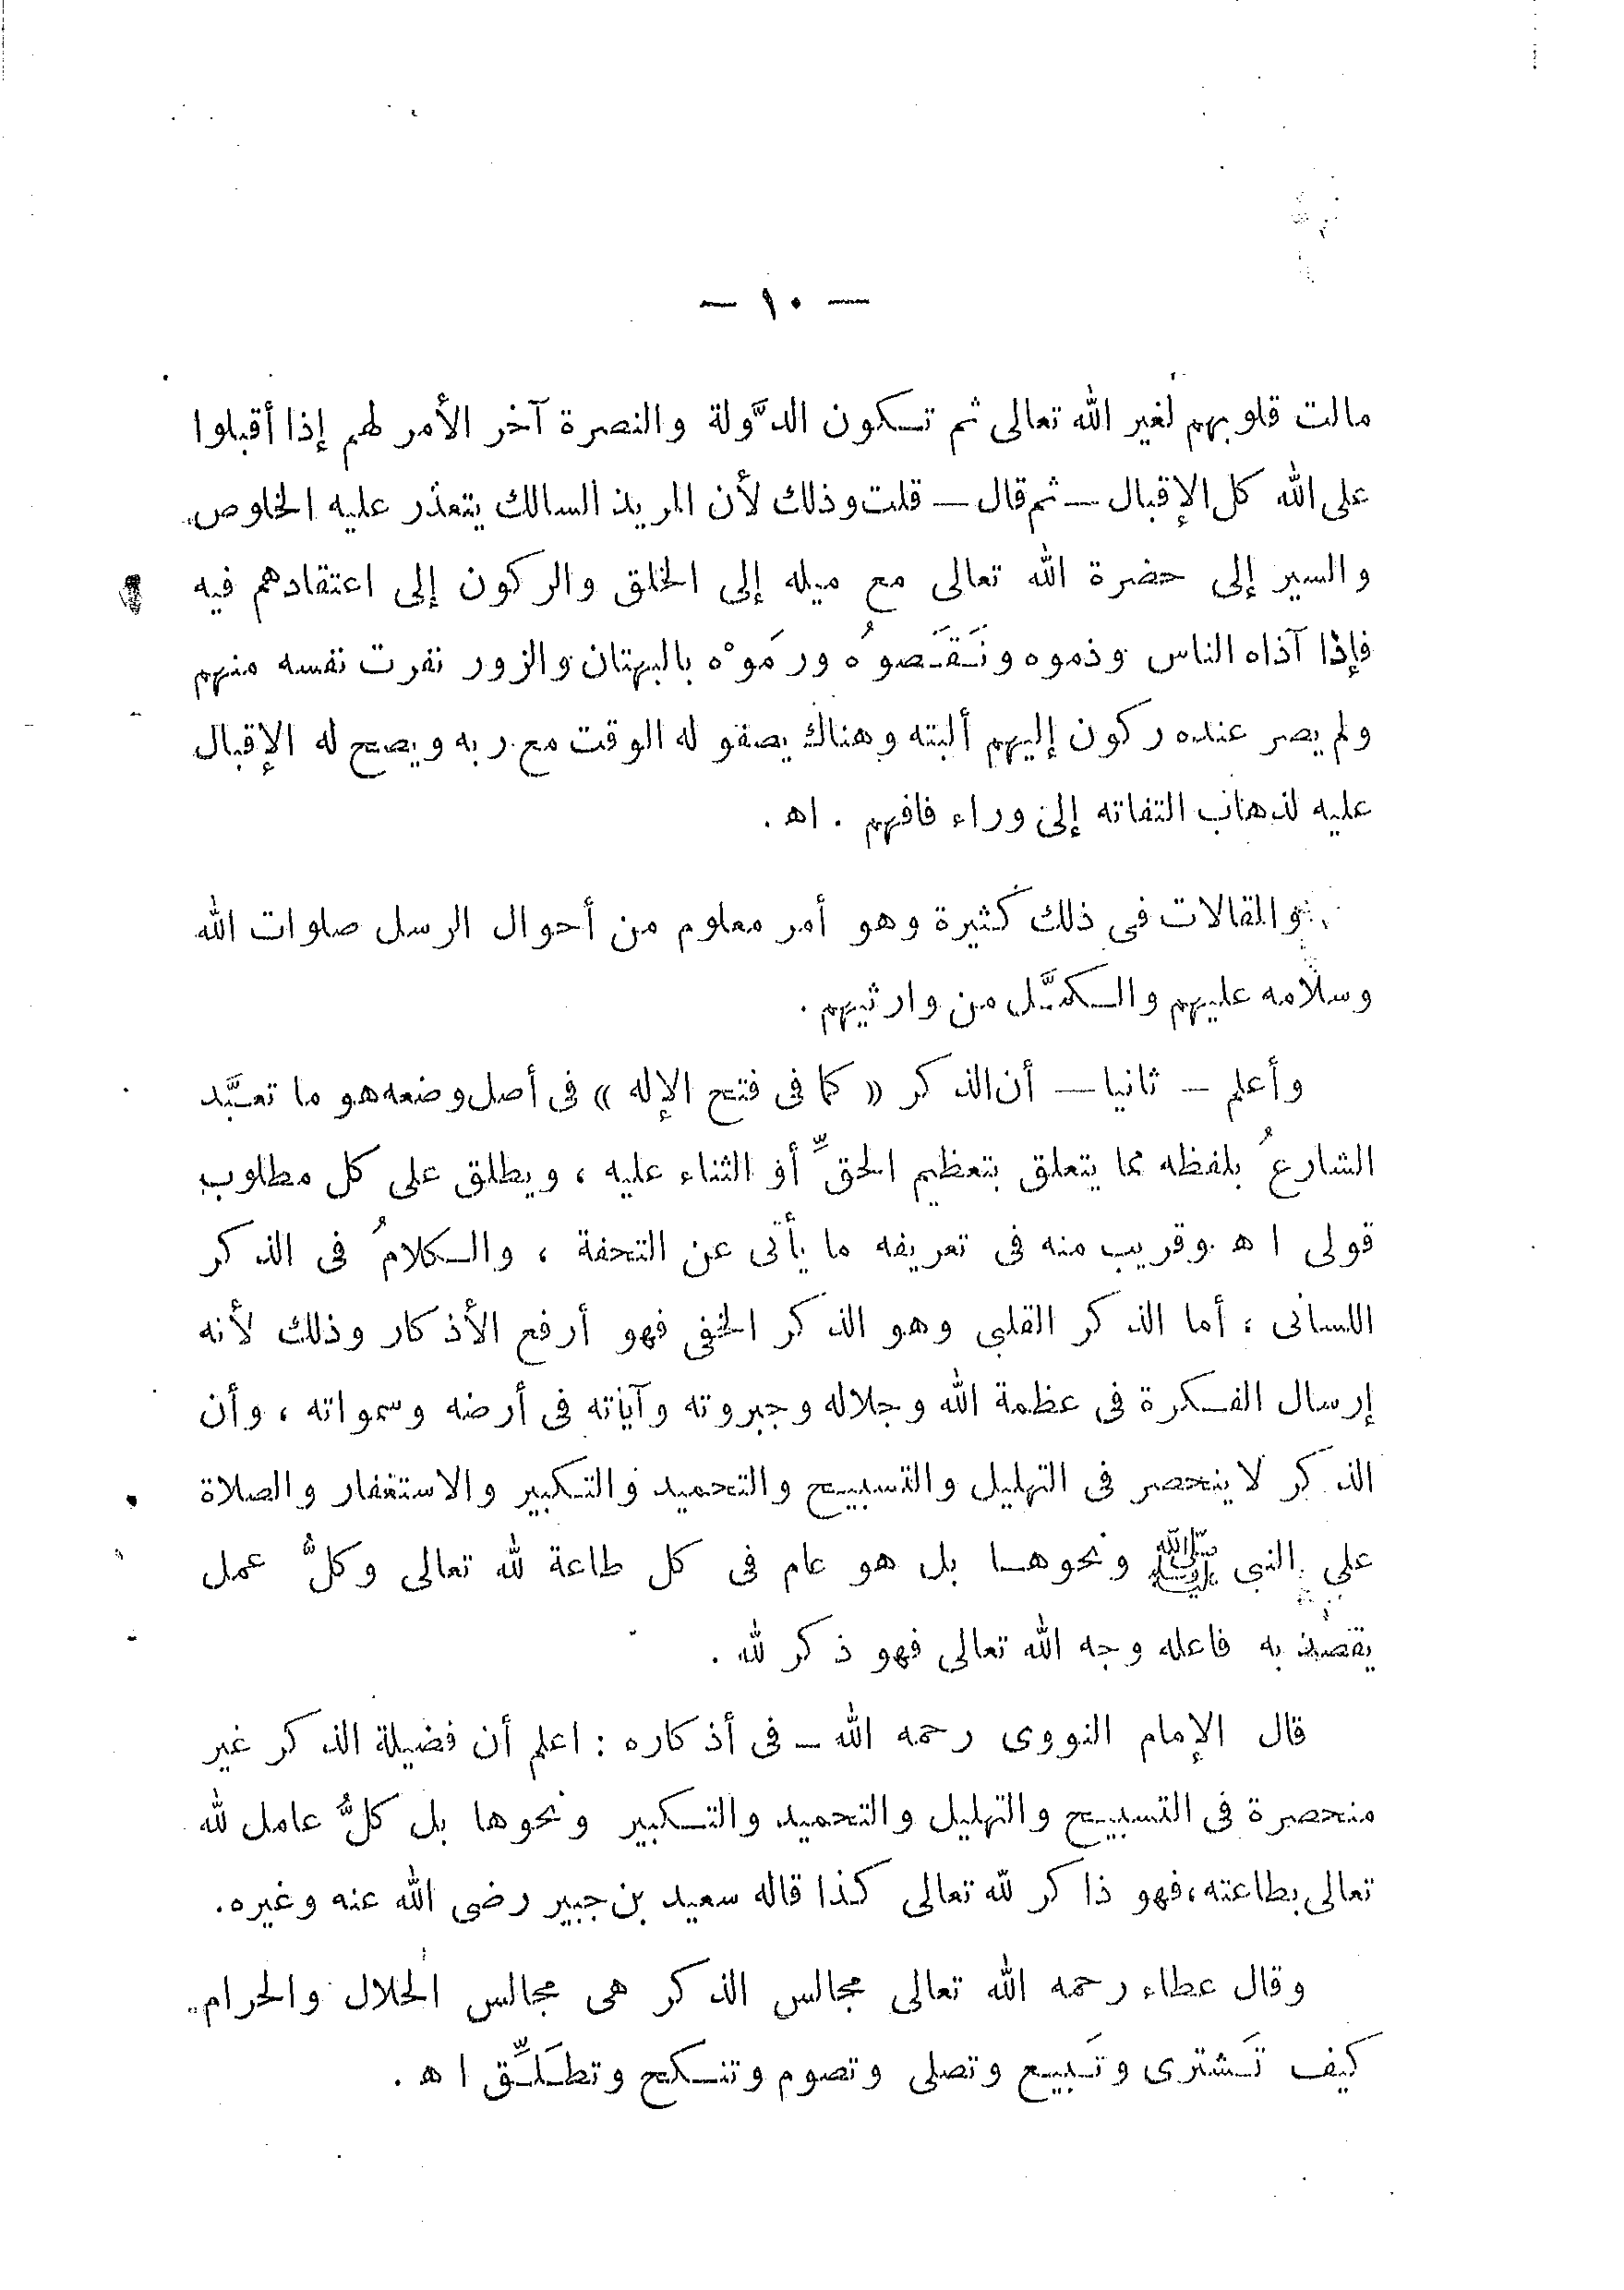 — ١٠ —
مالت قلوبهم لغير الله تعالى ثم تكون الدَّولة والنصرة آخر الأمر لهم إذا أقبلوا
على الله كل الإقبال — ثم قال — قلت وذلك لأن المريد السالك يتعذر عليه الخلوص
والسير إلى حضرة الله تعالى مع ميله إلى الخلق والركون إلى اعتقادهم فيه
فإذا آذاه الناس وذموه ونَقَصوُه ورمَوْه بالبهتان والزور نفرت نفسه منهم
ولم يصر عنده ركون إليهم ألبته وهناك يصفو له الوقت مع ربه ويصح له الإقبال
عليه لذهاب التفاته إلى وراء فافهم . اه .
والمقالات فى ذلك كثيرة وهو أمر معلوم من أحوال الرسل صلوات الله
وسلامه عليهم والكمَّل من وارثيهم .
وأعلم — ثانيا — أن الذكر « كما فى فتح الإله » فى أصل وضعه هو ما تعبَّد
الشارعُ بلفظه مما يتعلق بتعظيم الحقِّ أو الثناء عليه ، ويطلق على كل مطلوب
قولى ا ه وقريب منه فى تعريفه ما يأتى عن التحفة ، والكلامُ فى الذكر
اللسانى ، أما الذكر القلبى وهو الذكر الخفى فهو أرفع الأذكار وذلك لأنه
إرسال الفكرة فى عظمة الله وجلاله وجبروته وآياته فى أرضه وسمواته ، وأن
الذكر لا ينحصر فى التهليل والتسبيح والتحميد والتكبير والاستغفار والصلاة
على النبى ﷺ ونحوها بل هو عام فى كل طاعة لله تعالى وكلُّ عمل
يقصد به فاعله وجه الله تعالى فهو ذكر لله .
قال الإمام النووى رحمه الله — فى أذكاره : اعلم أن فضيلة الذكر غير
منحصرة فى التسبيح والتهليل والتحميد والتكبير ونحوها بل كلُّ عامل لله
تعالى بطاعته ، فهو ذاكر لله تعالى كذا قاله سعيد بن جبير رضى الله عنه وغيره .
وقال عطاء رحمه الله تعالى مجالس الذكر هى مجالس الحلال والحرام
كيف تَشترى وتَبيع وتصلى وتصوم وتنكح وتطَلِّق ا ه .